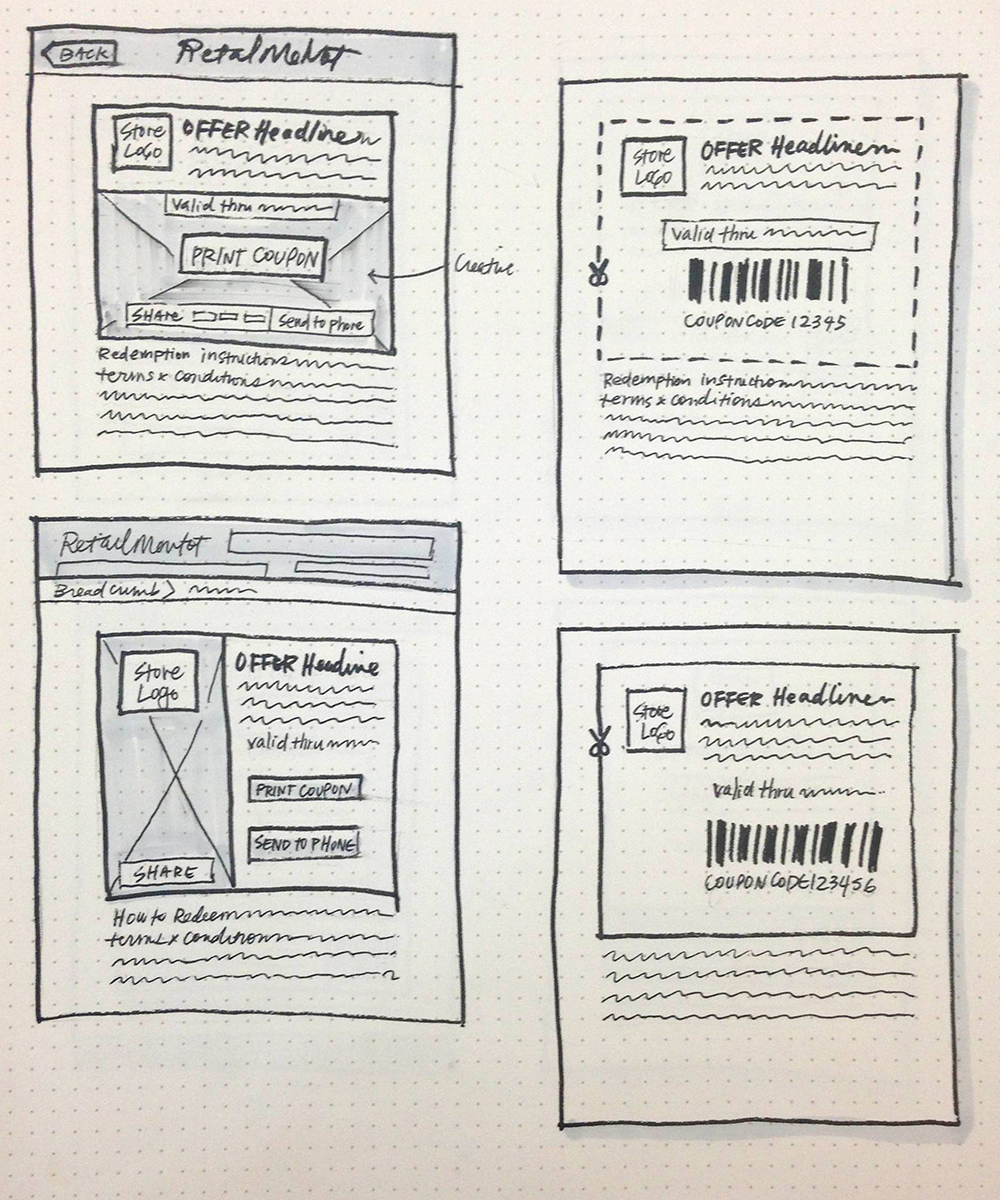 BACK
RetailMeNot
Store
Logo
OFFER Headline
Valid thru
PRINT COUPON
SHARE
Send to phone
Creative
Redemption instructions
terms & conditions
Store
Logo
OFFER Headline
valid thru
COUPON CODE 12345
Redemption instruction
terms & conditions
RetailMeNot
Breadcrumb >
Store
Logo
OFFER Headline
valid thru
PRINT COUPON
SEND TO PHONE
SHARE
How to Redeem
terms & conditions
Store
Logo
OFFER Headline
valid thru
COUPON CODE 123456